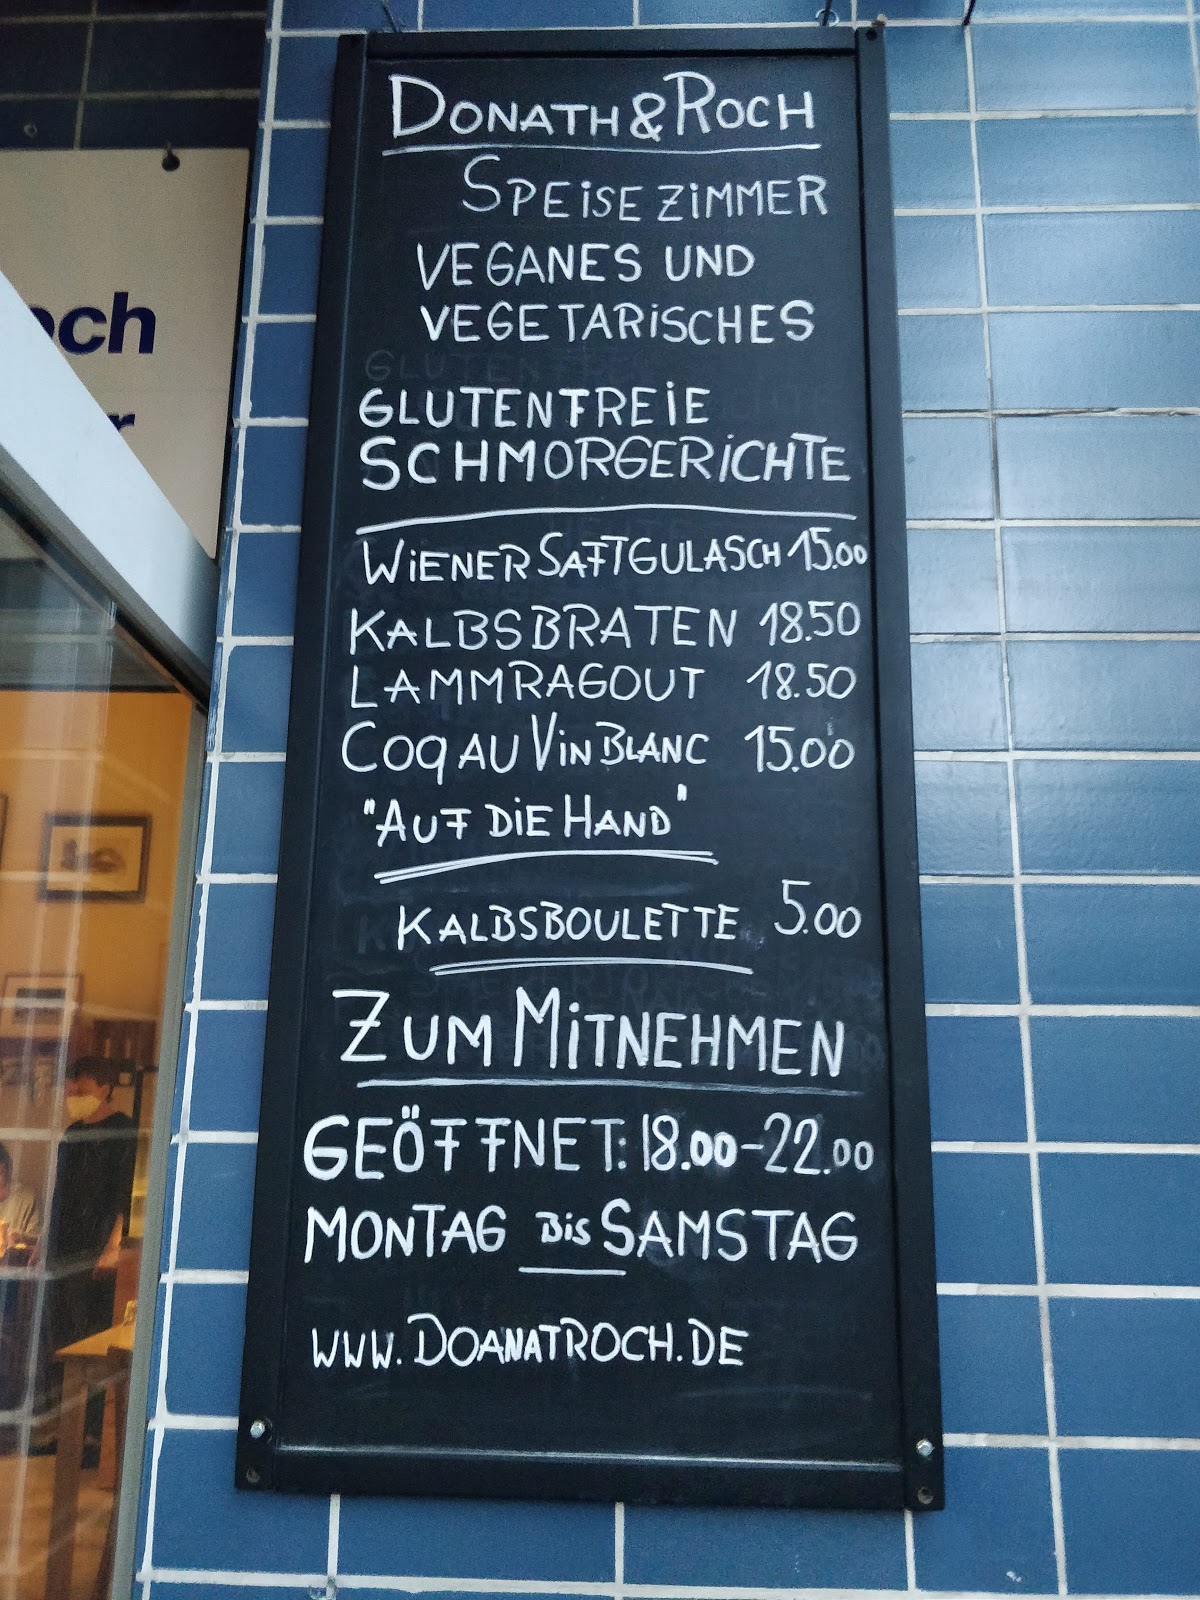 och
r
DONATH & ROCH
SPEISEZIMMER
VEGANES UND
VEGETARISCHES
GLUTENFREIE
SCHMORGERICHTE
WIENER SAFTGULASCH 15.00
KALBSBRATEN 18.50
LAMMRAGOUT 18.50
COQ AU VIN BLANC 15.00
"AUF DIE HAND"
KALBSBOULETTE 5.00
ZUM MITNEHMEN
GEÖFFNET: 18.00-22.00
MONTAG BIS SAMSTAG
WWW.DOANATROCH.DE